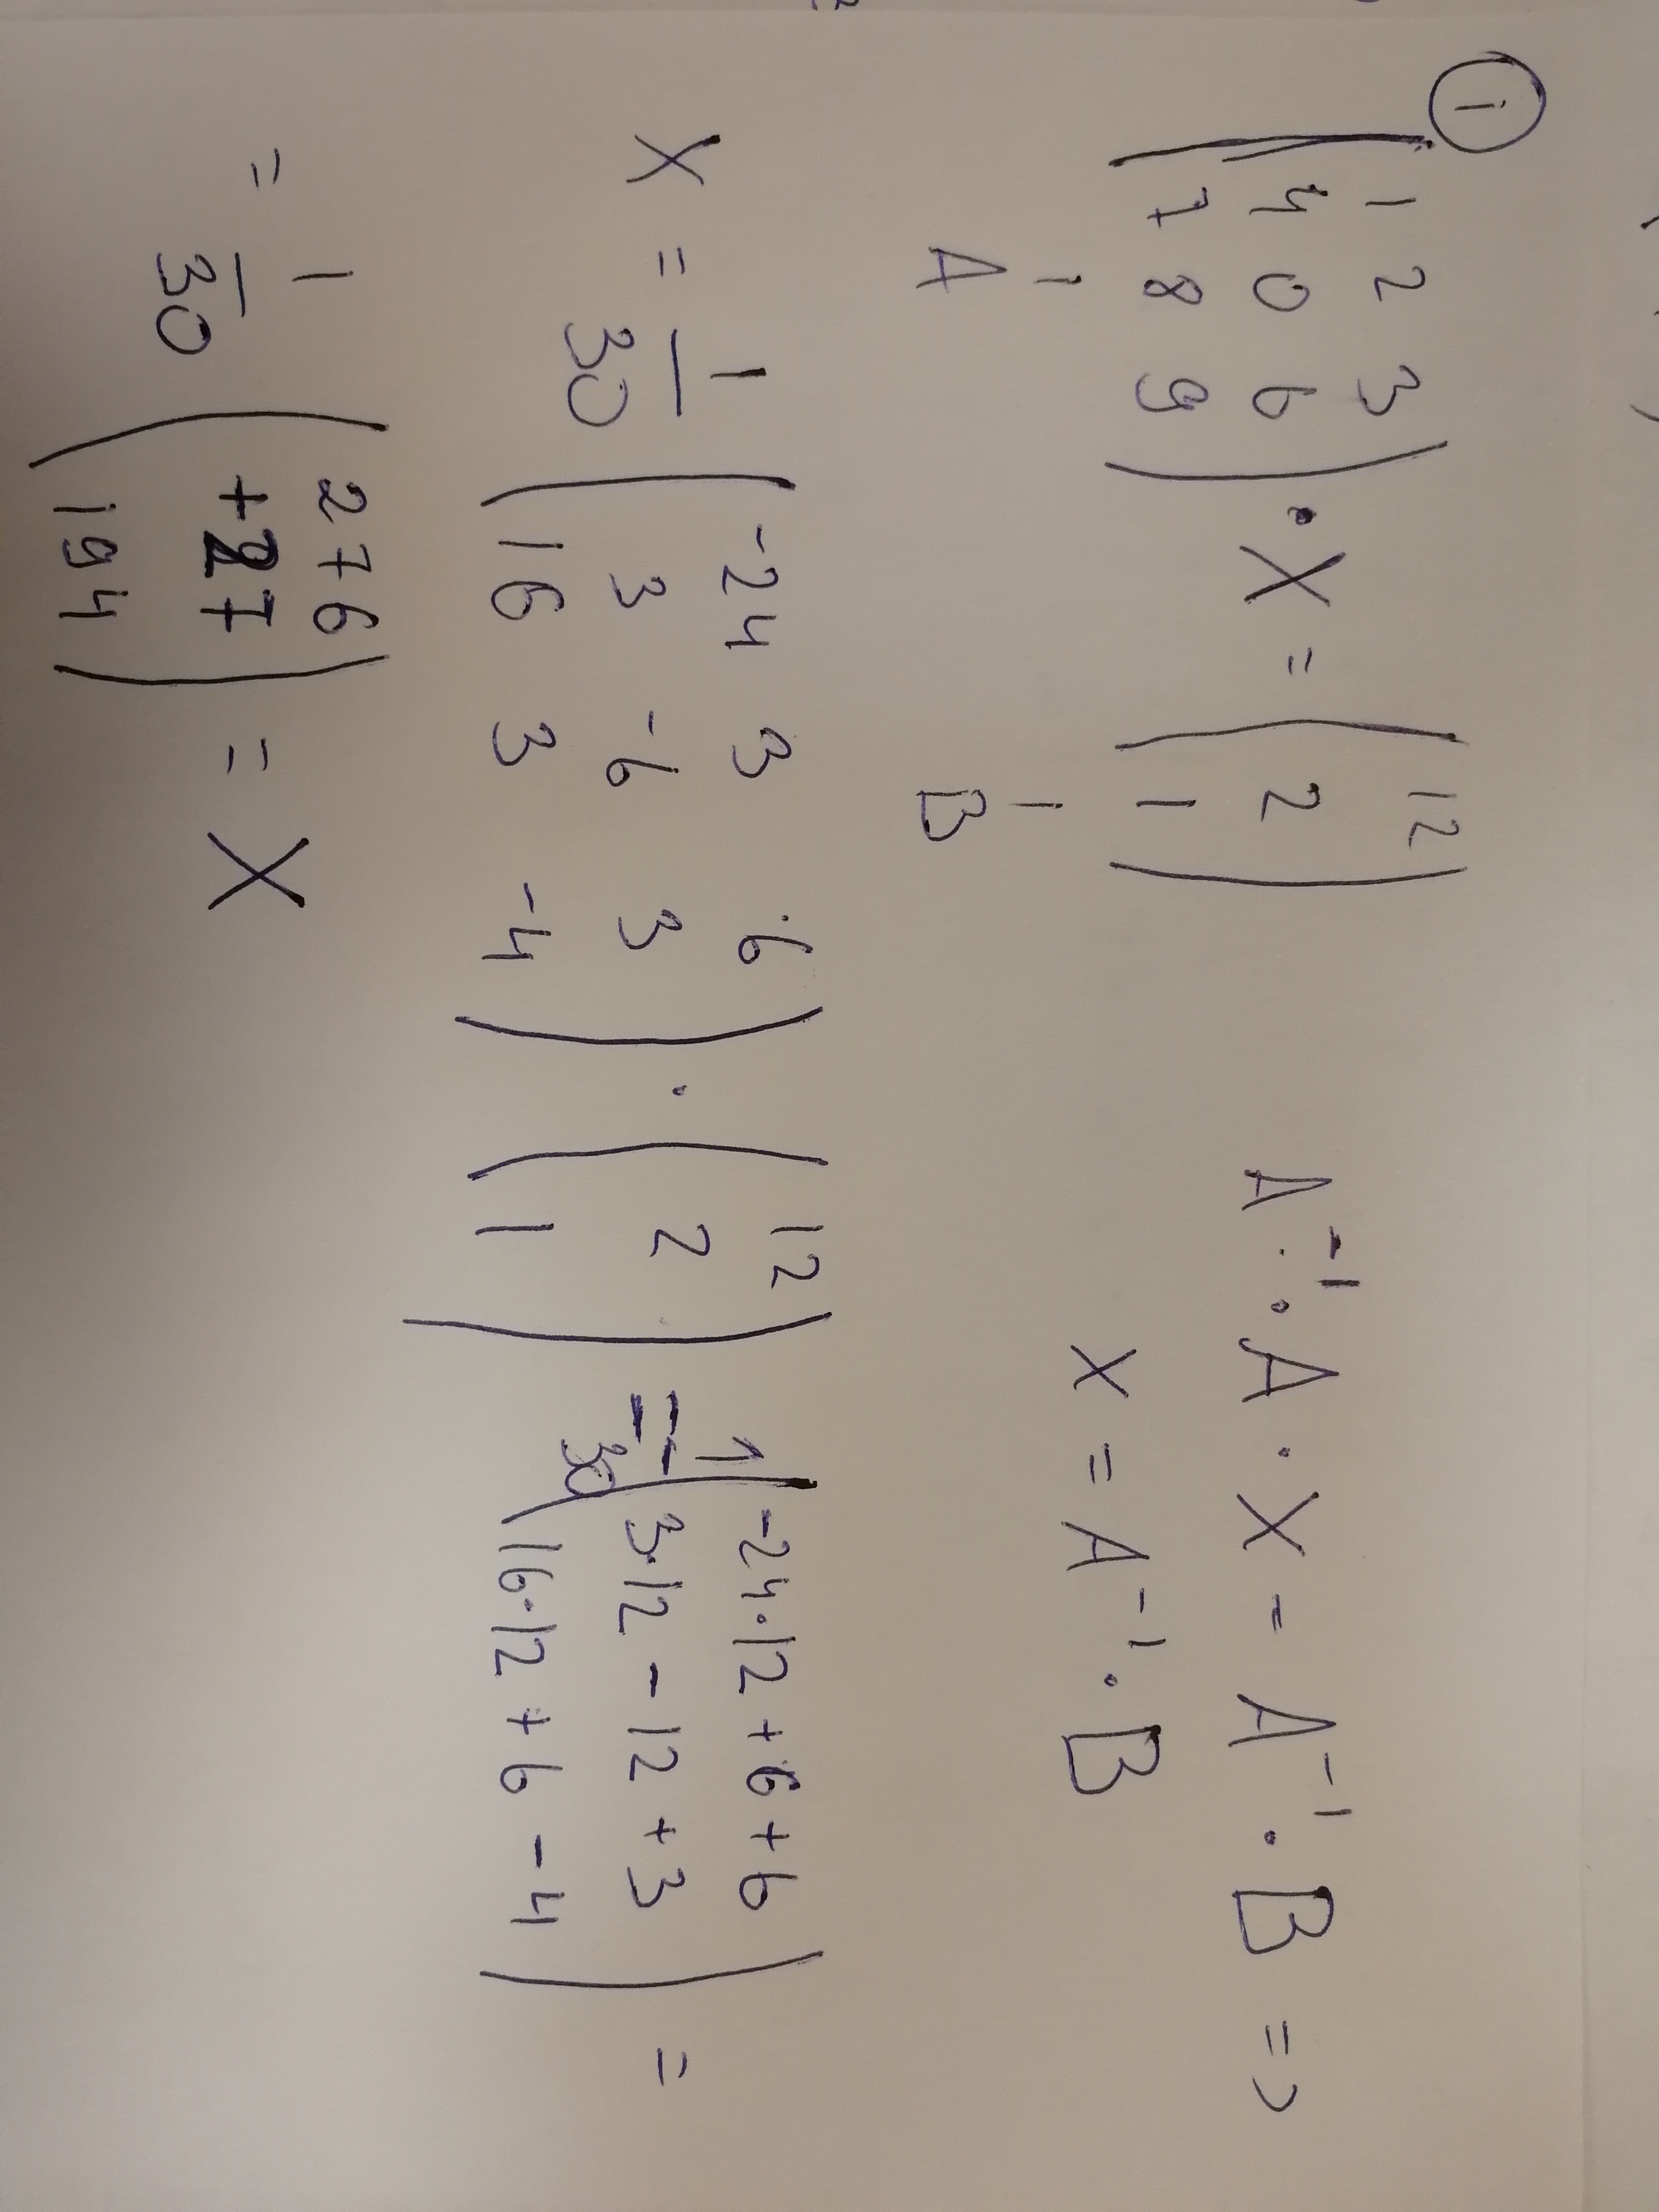 ①
( 1 2 3
4 0 6
7 8 9 ) · X = ( 12
2
1 )
A B
A⁻¹ · A · X = A⁻¹ · B =>
X = A⁻¹ · B
X = 1/30 ( -24 3 6
3 -6 3
16 3 -4 ) · ( 12
2
1 ) = 1/30 ( -24·12 + 6 + 6
3·12 - 12 + 3
16·12 + 6 - 4 ) =
= 1/30 ( 276
+27
194 ) = X